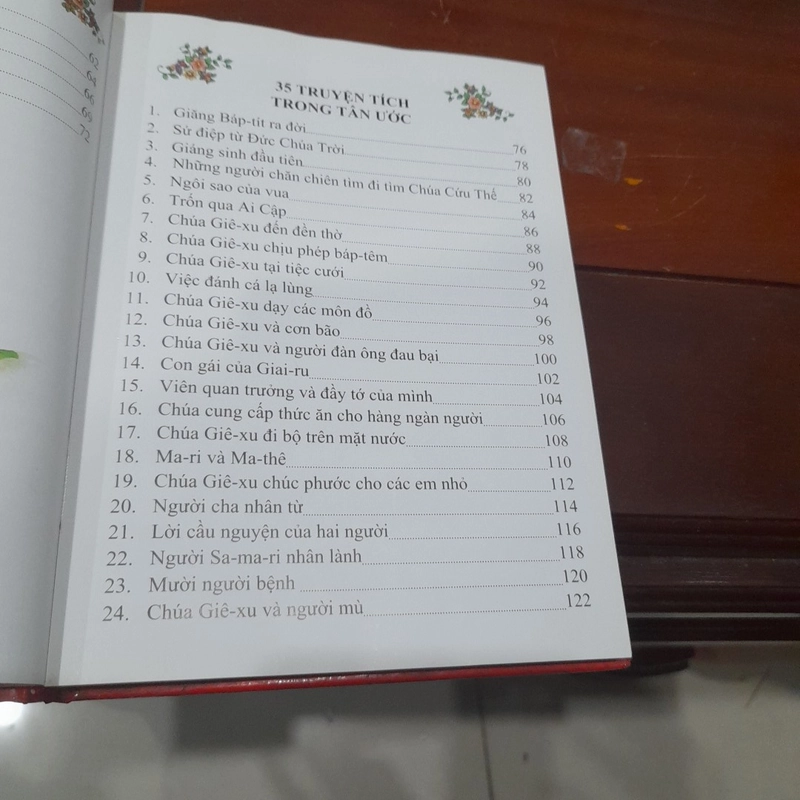 62
64
66
69
72
35 TRUYỆN TÍCH
TRONG TÂN ƯỚC
1. Giăng Báp-tít ra đời 76
2. Sứ điệp từ Đức Chúa Trời 78
3. Giáng sinh đầu tiên 80
4. Những người chăn chiên tìm đi tìm Chúa Cứu Thế 82
5. Ngôi sao của vua 84
6. Trốn qua Ai Cập 86
7. Chúa Giê-xu đến đền thờ 88
8. Chúa Giê-xu chịu phép báp-têm 90
9. Chúa Giê-xu tại tiệc cưới 92
10. Việc đánh cá lạ lùng 94
11. Chúa Giê-xu dạy các môn đồ 96
12. Chúa Giê-xu và cơn bão 98
13. Chúa Giê-xu và người đàn ông đau bại 100
14. Con gái của Giai-ru 102
15. Viên quan trưởng và đầy tớ của mình 104
16. Chúa cung cấp thức ăn cho hàng ngàn người 106
17. Chúa Giê-xu đi bộ trên mặt nước 108
18. Ma-ri và Ma-thê 110
19. Chúa Giê-xu chúc phước cho các em nhỏ 112
20. Người cha nhân từ 114
21. Lời cầu nguyện của hai người 116
22. Người Sa-ma-ri nhân lành 118
23. Mười người bệnh 120
24. Chúa Giê-xu và người mù 122